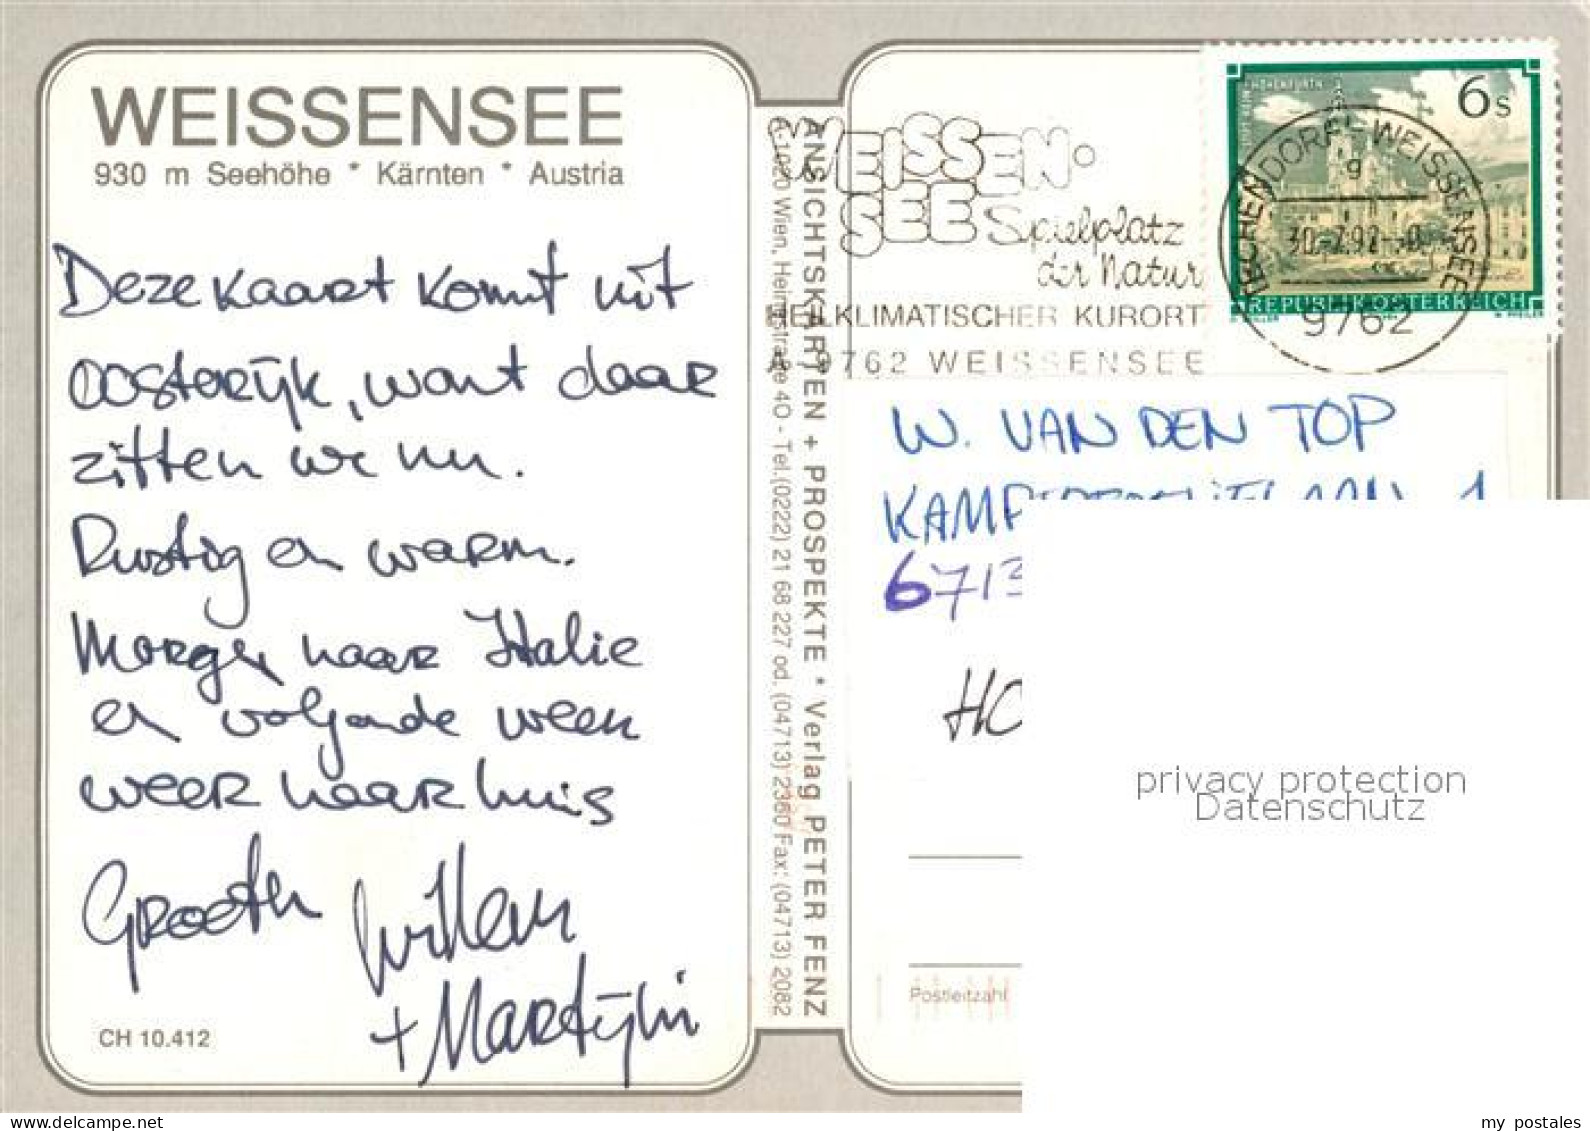 WEISSENSEE
930 m Seehöhe * Kärnten * Austria
Deze kaart komt uit
oosterijk, want daar
zitten we nu.
Rustig en warm.
Morgen naar Italie
en volgende week
weer naar huis
Groeten Willem
+ Martijn
CH 10.412
ANSICHTSKARTEN + PROSPEKTE * Verlag PETER FENZ
A-1020 Wien, Heinestraße 40 - Tel.(0222) 21 68 227 od. (04713) 2360 Fax: (04713) 2082
WEISSEN-
SEE Spielplatz
der Natur
HEILKLIMATISCHER KURORT
A-9762 WEISSENSEE
6 s
REPUBLIK ÖSTERREICH
TECHENDORF WEISSENSEE
g
9762
W. VAN DEN TOP
1
6713
HO
Postleitzahl
privacy protection
Datenschutz
my postales